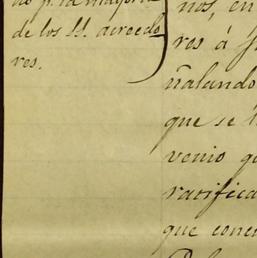 de los SS. acreedo
res.
nos, en
ros á
ñalando
que se
venio
ratifica
que